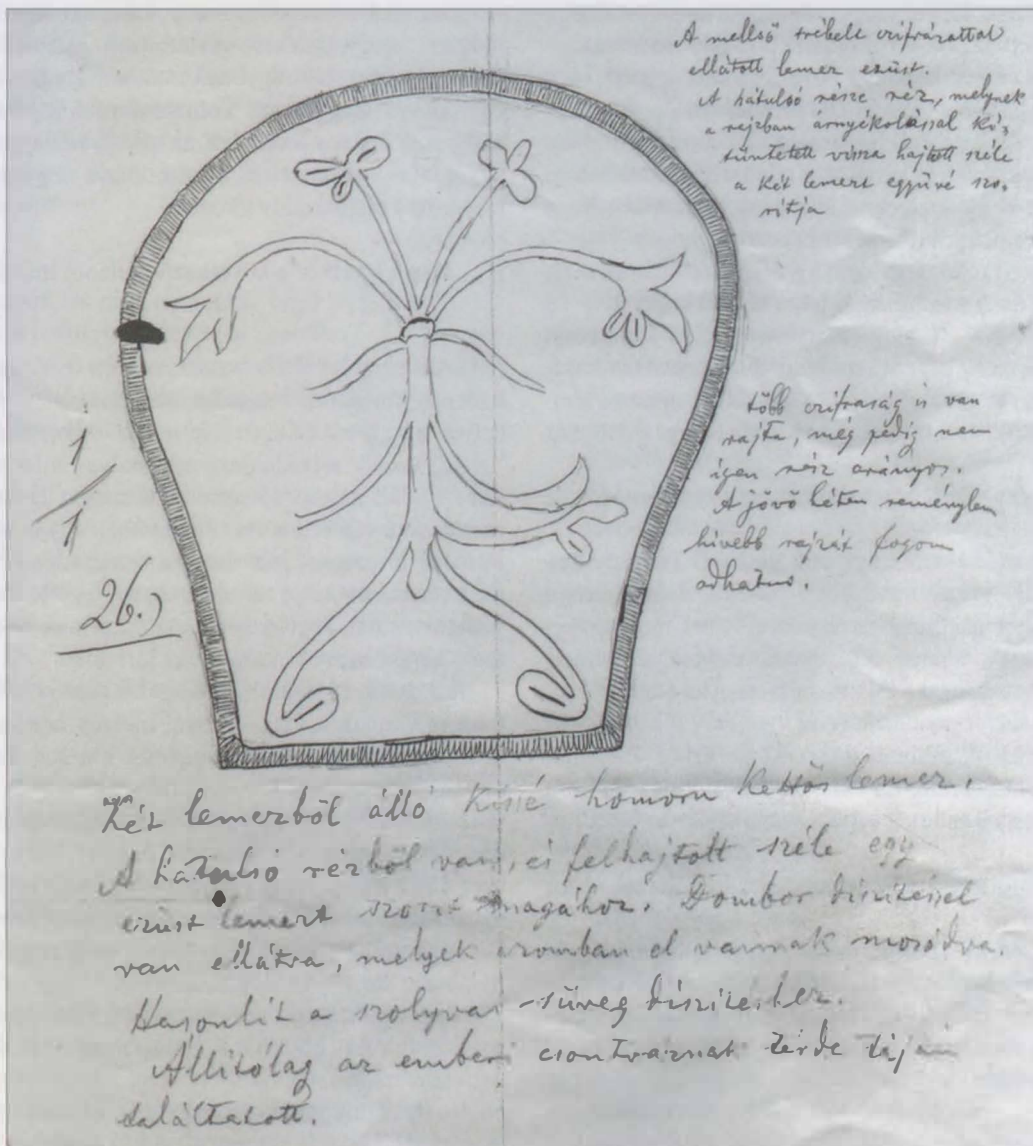 A mellső trébelt czifrázattal
ellátott lemez ezüst.
A hátulsó része réz, melynek
a rajzban árnyékolással ki-
tüntetett vissza hajtott széle
a két lemezt együvé szo-
ritja
több czifraság is van
rajta, még pedig nem
igen néz arányos.
A jövő héten reménylem
hivebb rajzát fogom
adhatni.
1/1
26.)
Két lemezből álló kissé homoru kettős lemez.
A hátulsó rézből van, és felhajtott széle egy
ezüst lemezt szorit magához. Dombor diszitéssel
van ellátva, melyek azomban el vannak mosódva.
Hasonlit a szolyvai süveg diszitéshez.
Állitólag az emberi csontváznak térde táján
találtatott.